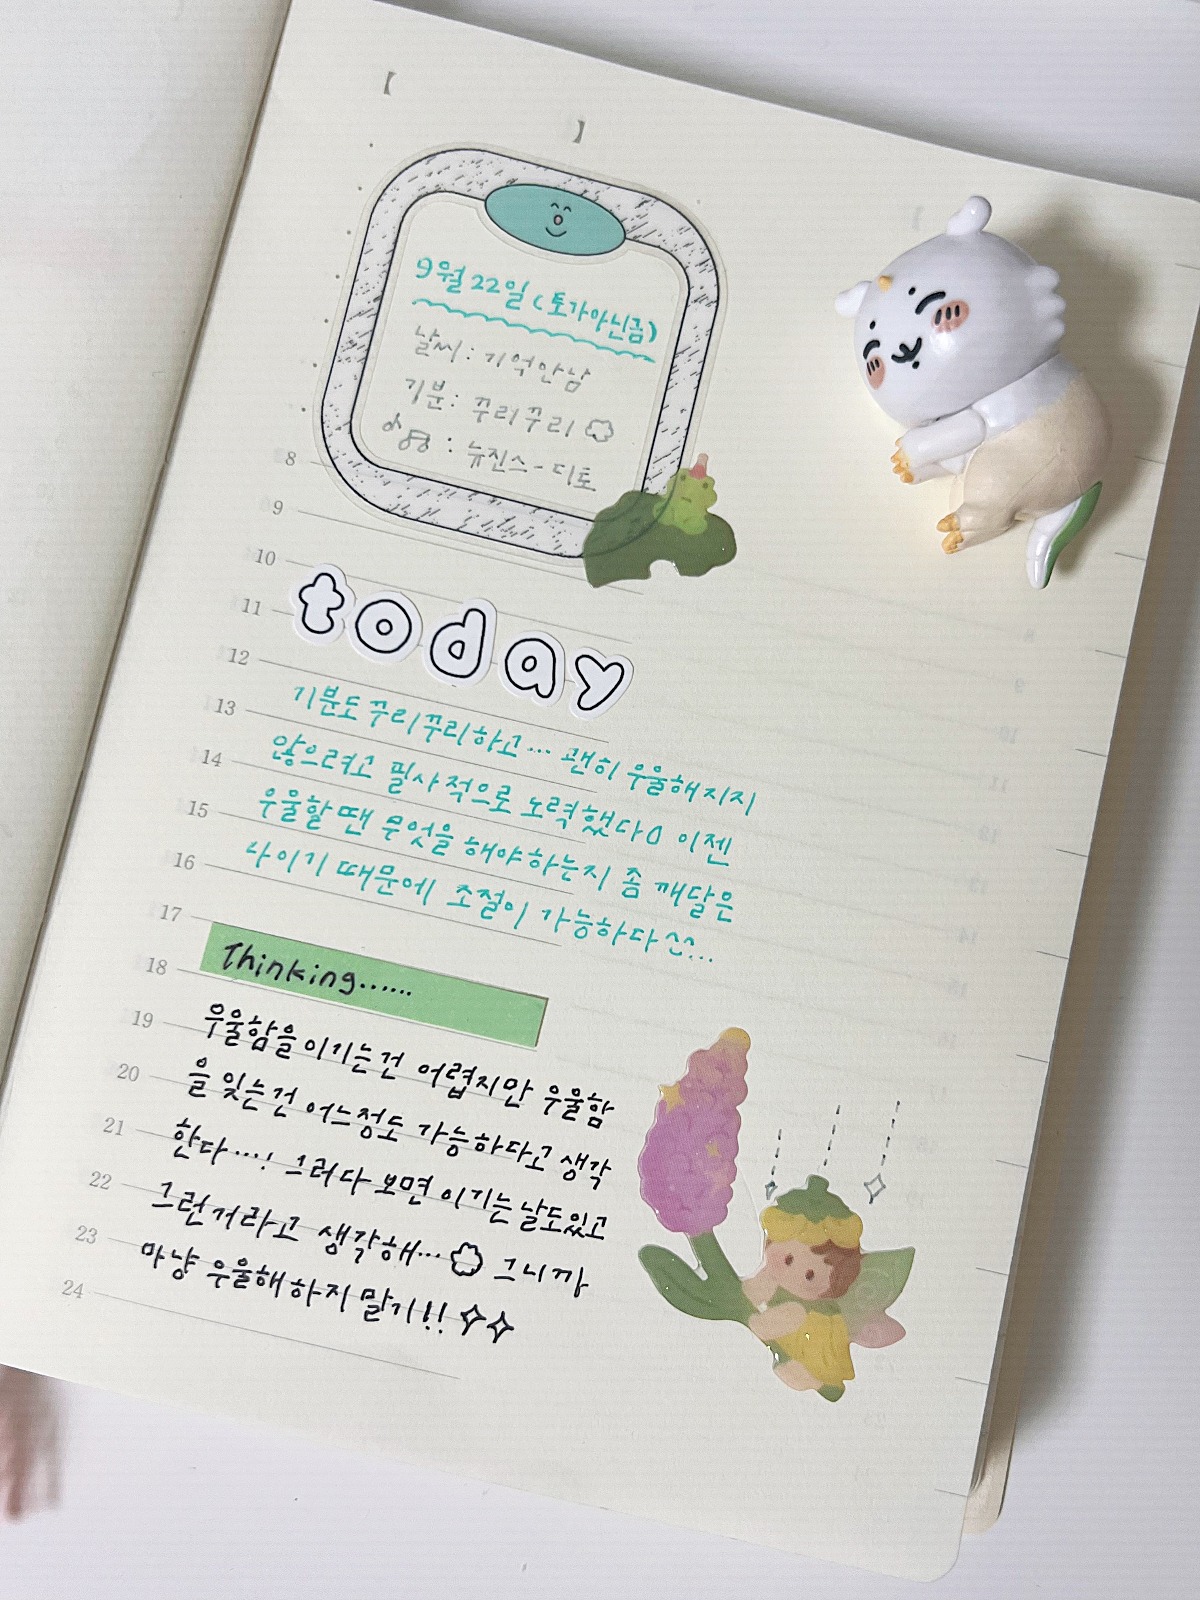 【
】
9월 22일 (토가아닌금)
날씨 : 기억안남
기분 : 꾸리꾸리
: 뉴진스 - 디토
8
9
10
11
today
12
13
기분도 꾸리꾸리하고... 괜히 우울해지지
14
않으려고 필사적으로 노력했다 이젠
15
우울할땐 무엇을 해야하는지 좀 깨달은
16
나이기 때문에 조절이 가능하다 ^^...
17
Thinking......
18
19
우울함을 이기는건 어렵지만 우울함
20
을 잊는건 어느정도 가능하다고 생각
21
한다...! 그러다 보면 이기는 날도있고
22
그런거라고 생각해... 그니까
23
마냥 우울해 하지 말기!!
24